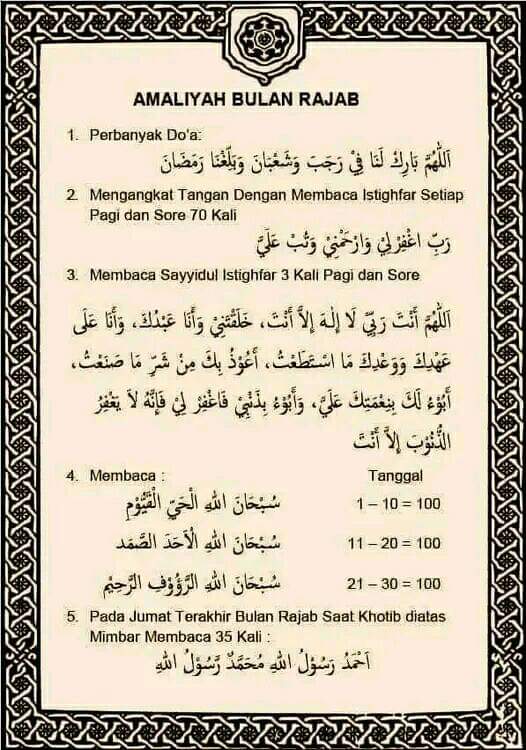 AMALIYAH BULAN RAJAB
1. Perbanyak Do'a:
اَللّٰهُمَّ بَارِكْ لَنَا فِيْ رَجَبَ وَشَعْبَانَ وَبَلِّغْنَا رَمَضَانَ
2. Mengangkat Tangan Dengan Membaca Istighfar Setiap
Pagi dan Sore 70 Kali
رَبِّ اغْفِرْ لِيْ وَارْحَمْنِيْ وَتُبْ عَلَيَّ
3. Membaca Sayyidul Istighfar 3 Kali Pagi dan Sore
اَللّٰهُمَّ أَنْتَ رَبِّيْ لَا إِلٰهَ إِلاَّ أَنْتَ، خَلَقْتَنِيْ وَأَنَا عَبْدُكَ، وَأَنَا عَلَى
عَهْدِكَ وَوَعْدِكَ مَا اسْتَطَعْتُ، أَعُوْذُ بِكَ مِنْ شَرِّ مَا صَنَعْتُ،
أَبُوْءُ لَكَ بِنِعْمَتِكَ عَلَيَّ، وَأَبُوْءُ بِذَنْبِيْ فَاغْفِرْ لِيْ فَإِنَّهُ لَا يَغْفِرُ
الذُّنُوْبَ إِلاَّ أَنْتَ
4. Membaca : Tanggal
سُبْحَانَ اللهِ الْحَيِّ الْقَيُّوْمِ 1 – 10 = 100
سُبْحَانَ اللهِ الْأَحَدِ الصَّمَد 11 – 20 = 100
سُبْحَانَ اللهِ الرَّؤُوْفِ الرَّحِيْمِ 21 – 30 = 100
5. Pada Jumat Terakhir Bulan Rajab Saat Khotib diatas
Mimbar Membaca 35 Kali :
اَحْمَدُ رَسُوْلُ اللهِ مُحَمَّدٌ رَّسُوْلُ اللهِ